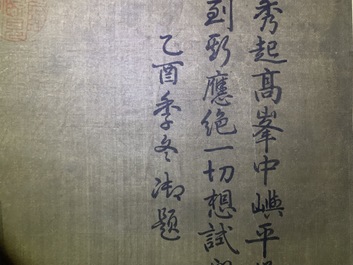 秀起高峯中嶼平
到斯應絶一切想試
乙酉季冬御題